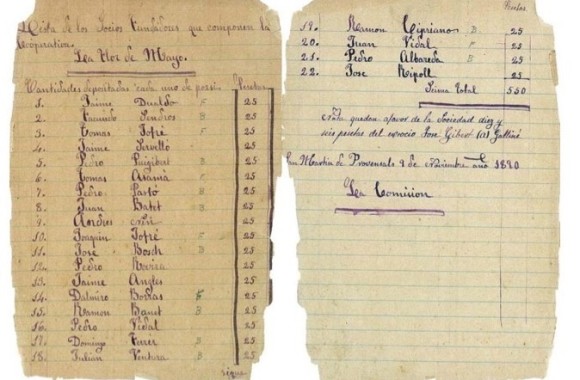 Lista de los Socios fundadores que componen la
Cooperativa.
La Flor de Mayo.
Cantidades depositadas cada uno de por si. Pesetas
1. Jaime Dualdo F 25
2. Facundo Sendros B 25
3. Tomas Jofré F 25
4. Jaime 25
5. Pedro Puigibert B 25
6. Tomas C 25
7. Pedro B 25
8. Juan Batet B 25
9. Andres 25
10. Joaquin Jofré F 25
11. Jose Bosch B 25
12. Pedro Rovira 25
13. Jaime Angles 25
14. Dalmiro Borras F 25
15. Ramon Banet B 25
16. Pedro Vidal 25
17. Domingo B 25
18. Julian Ventura B 25
sigue
Pesetas
19. Ramon Cipriano B 25
20. Juan Vidal F 25
21. Pedro Albareda B 25
22. Jose Ripoll 25
Suma total 550
quedan afavor de la Sociedad diez y
seis pesetas del exsocio Jose Gibert (a) Galliné
San Martin de Provensals 9 de Noviembre año 1890
La Comision